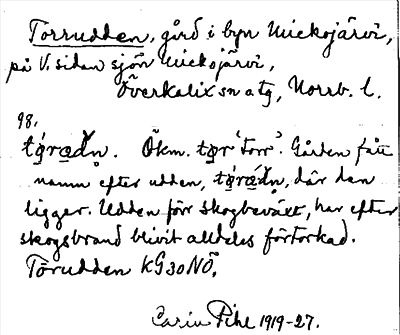 Torrudden, gård i byn Mickojärvi,
på V. sidan sjön Mickojärvi,
Överkalix sn o tg, Norrb. l.
98.
tǿrạđn. Ökm. tør 'torr'. Gården fått
namn efter udden, tǿrạđn, där den
ligger. Udden förr skogbeväxt, har efter
skogsbrand blivit alldeles förtorkad.
Törudden KG30NÖ.
Carin Pihl 1919-27.